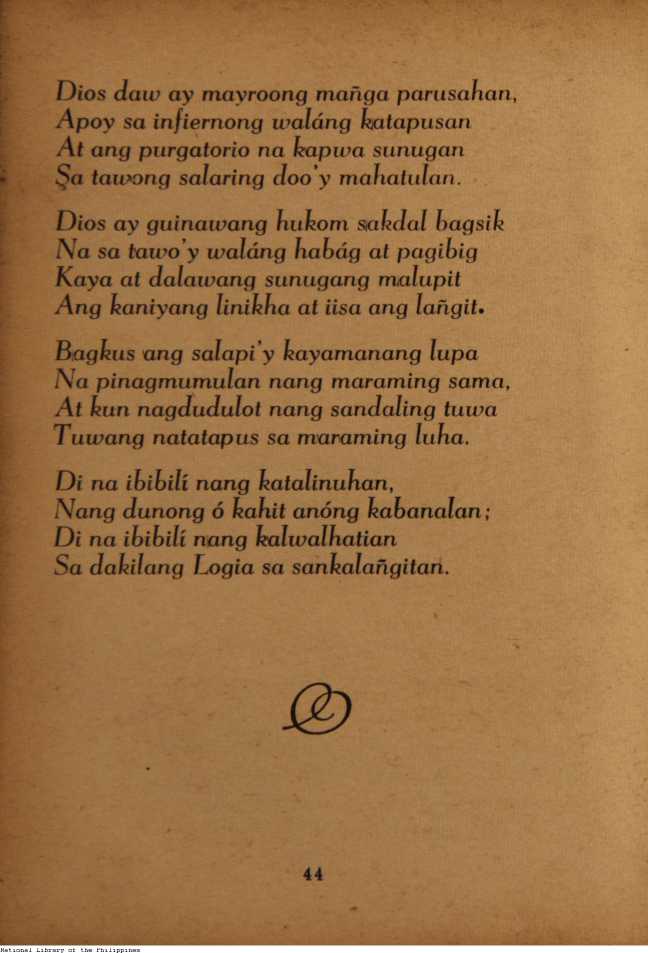 Dios daw ay mayroong mañga parusahan,
Apoy sa infiernong waláng katapusan
At ang purgatorio na kapwa sunugan
Sa tawong salaring doo'y mahatulan.
Dios ay guinawang hukom sakdal bagsik
Na sa tawo'y waláng habág at pagibig
Kaya at dalawang sunugang malupit
Ang kaniyang linikha at iisa ang lañgit.
Bagkus ang salapi'y kayamanang lupa
Na pinagmumulan nang maraming sama,
At kun nagdudulot nang sandaling tuwa
Tuwang natatapus sa maraming luha.
Di na ibibilí nang katalinuhan,
Nang dunong ó kahit anóng kabanalan;
Di na ibibilí nang kalwalhatian
Sa dakilang Logia sa sankalañgitan.
44
National Library of the Philippines